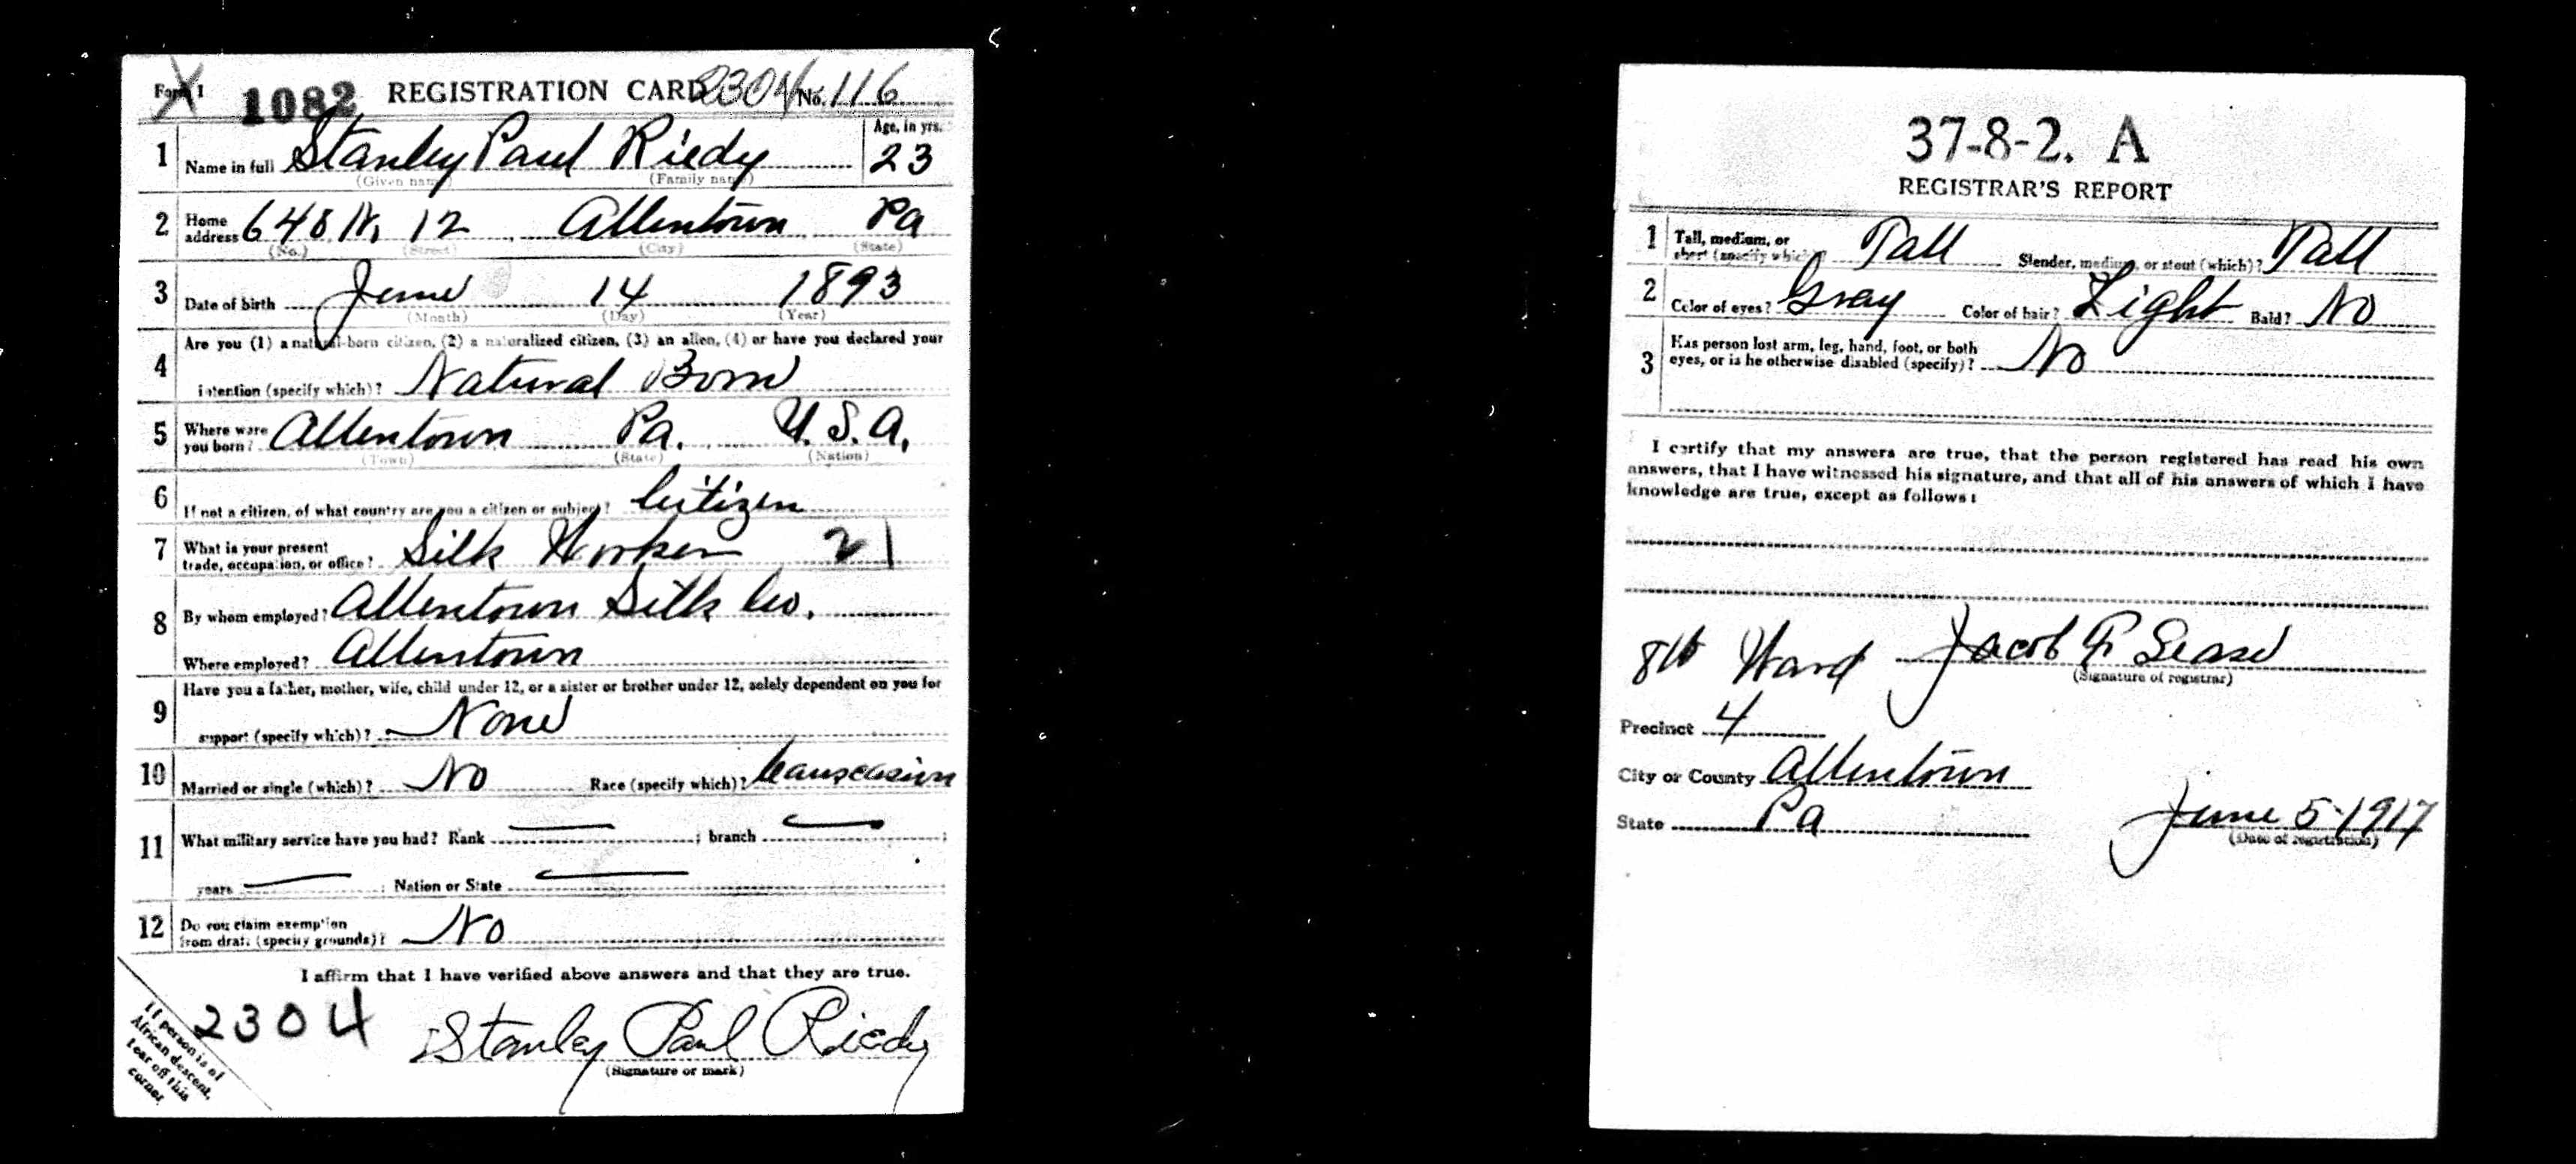 Form 1 1082 REGISTRATION CARD 2304 No. 116
1 Name in full Stanley Paul Riedy Age, in yrs. 23
(Given name) (Family name)
2 Home address 648 N. 12 Allentown Pa
(No.) (Street) (City) (State)
3 Date of birth June 14 1893
(Month) (Day) (Year)
4 Are you (1) a natural-born citizen, (2) a naturalized citizen, (3) an alien, (4) or have you declared your
intention (specify which)? Natural Born
5 Where were you born? Allentown Pa. U.S.A.
(Town) (State) (Nation)
6 If not a citizen, of what country are you a citizen or subject? Citizen
7 What is your present trade, occupation, or office? Silk Worker 21
8 By whom employed? Allentown Silk Co.
Where employed? Allentown
9 Have you a father, mother, wife, child under 12, or a sister or brother under 12, solely dependent on you for
support (specify which)? None
10 Married or single (which)? No Race (specify which)? Causcasion
11 What military service have you had? Rank — ; branch — ;
years — ; Nation or State —
12 Do you claim exemption from draft (specify grounds)? No
I affirm that I have verified above answers and that they are true.
2304 Stanley Paul Riedy
(Signature or mark)
If person is of
African descent,
tear off this
corner
37-8-2. A
REGISTRAR'S REPORT
1 Tall, medium, or short (specify which)? Tall Slender, medium, or stout (which)? Tall
2 Color of eyes? Gray Color of hair? Light Bald? No
3 Has person lost arm, leg, hand, foot, or both
eyes, or is he otherwise disabled (specify)? No
I certify that my answers are true, that the person registered has read his own
answers, that I have witnessed his signature, and that all of his answers of which I have
knowledge are true, except as follows:
8th Ward Jacob F. Sease
(Signature of registrar)
Precinct 4
City or County Allentown
State Pa June 5-1917
(Date of registration)